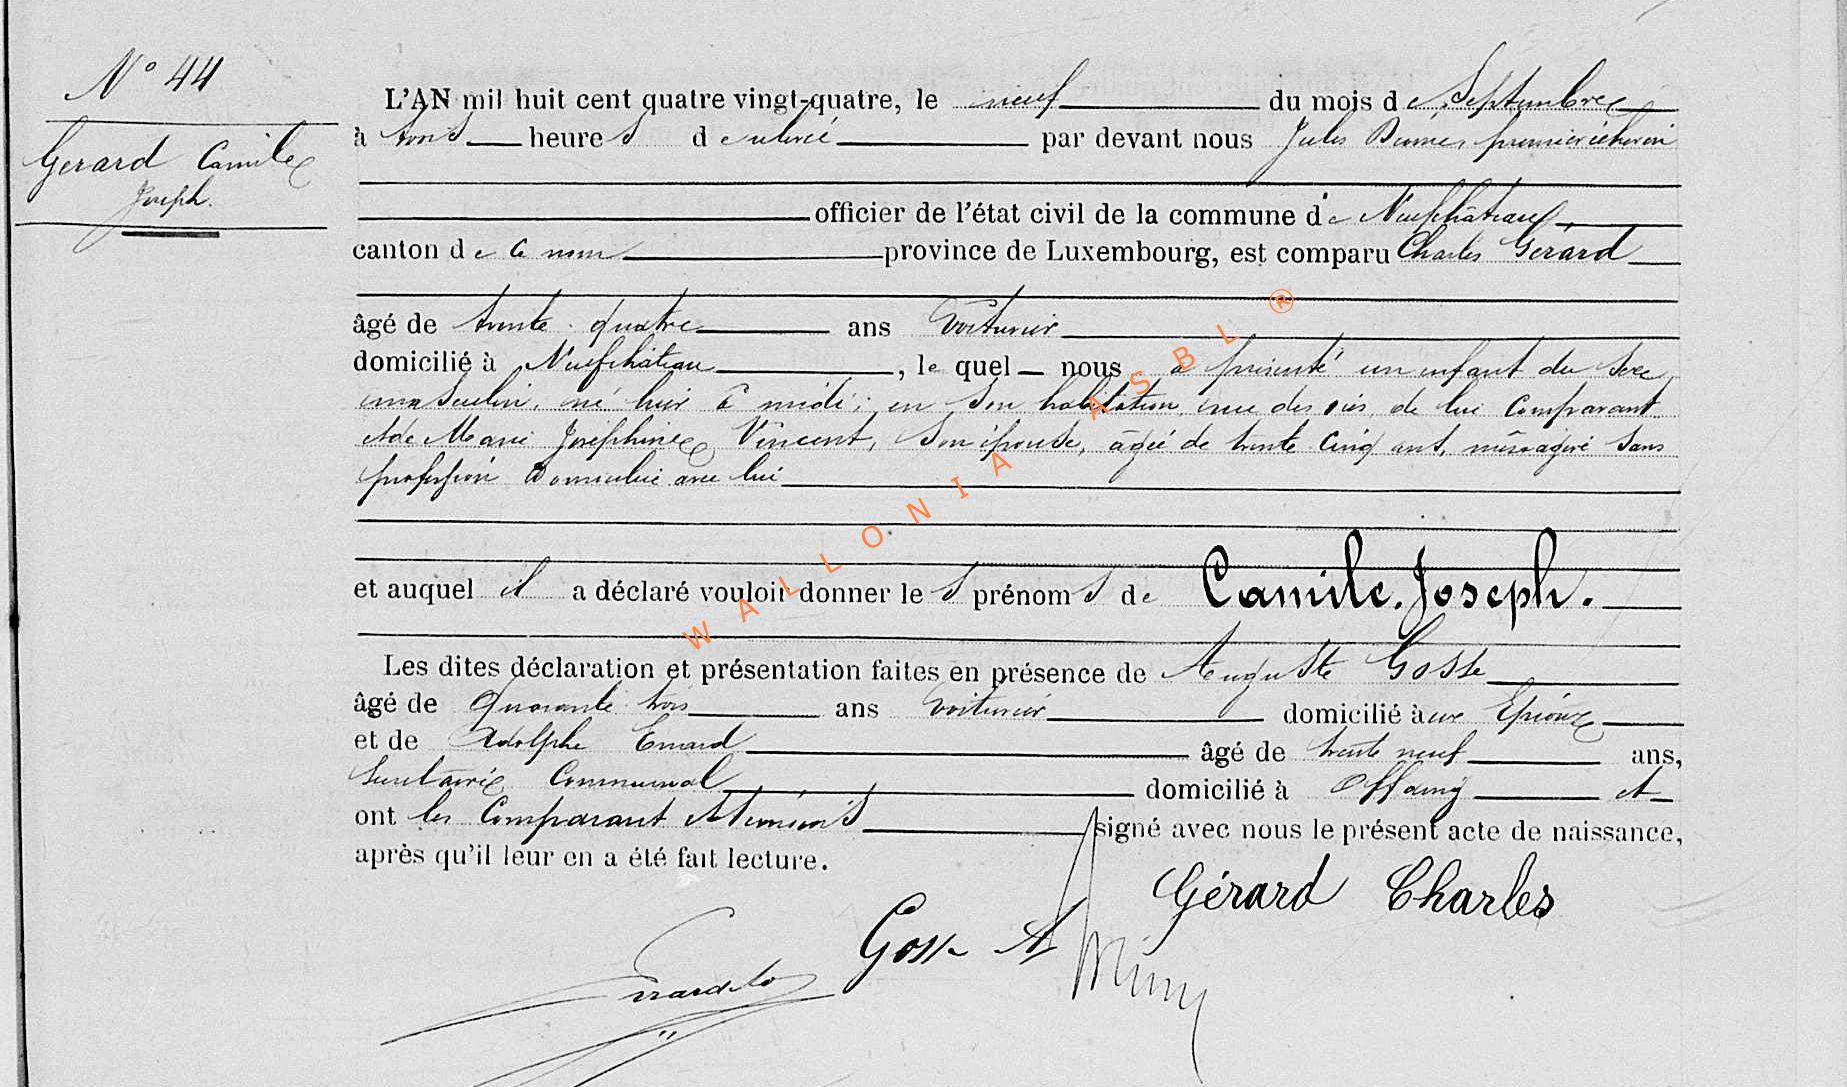 N° 44
Gerard Camile
Joseph.
L'AN mil huit cent quatre vingt-quatre, le neuf du mois de Septembre
à trois heures de relevée par devant nous Jules premier échevin
officier de l'état civil de la commune de Neufchâteau
canton de ce nom province de Luxembourg, est comparu Charles Gérard
âgé de trente quatre ans voiturier
domicilié à Neufchâteau, le quel nous a présenté un enfant du sexe
masculin, né hier à midi; en son habitation, rue des de lui comparant
et de Marie Joséphine Vincent, son épouse, âgée de trente cinq ans, ménagère sans
profession domiciliée avec lui
et auquel il a déclaré vouloir donner les prénoms de Camile. Joseph.
Les dites déclaration et présentation faites en présence de Auguste Gosse
âgé de quarante trois ans voiturier domicilié aux Epioux
et de Adolphe Erard âgé de trente neuf ans,
Secrétaire Communal domicilié à Offaing et
ont les Comparant et témoins signé avec nous le présent acte de naissance,
après qu'il leur en a été fait lecture.
Gérard Charles
Gosse A
WALLONIA ASBL ®